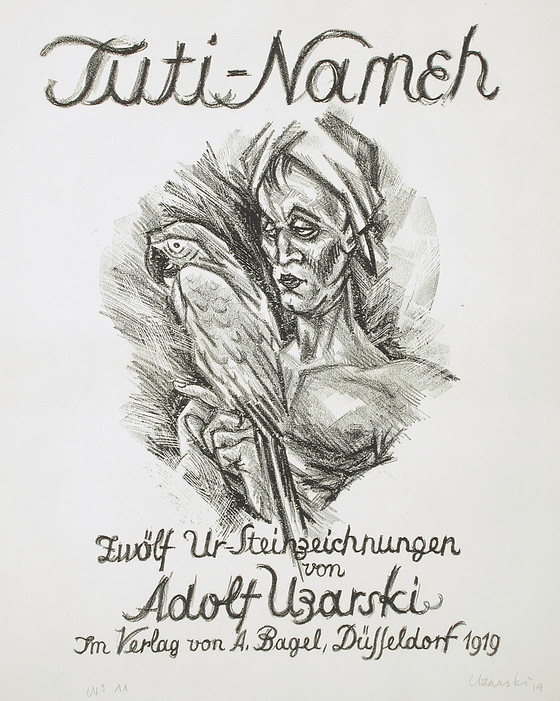 Tuti-Nameh
Zwölf Ur-Steinzeichnungen
von
Adolf Uzarski
Im Verlag von A. Bagel, Düsseldorf 1919
No 11
Uzarski 19